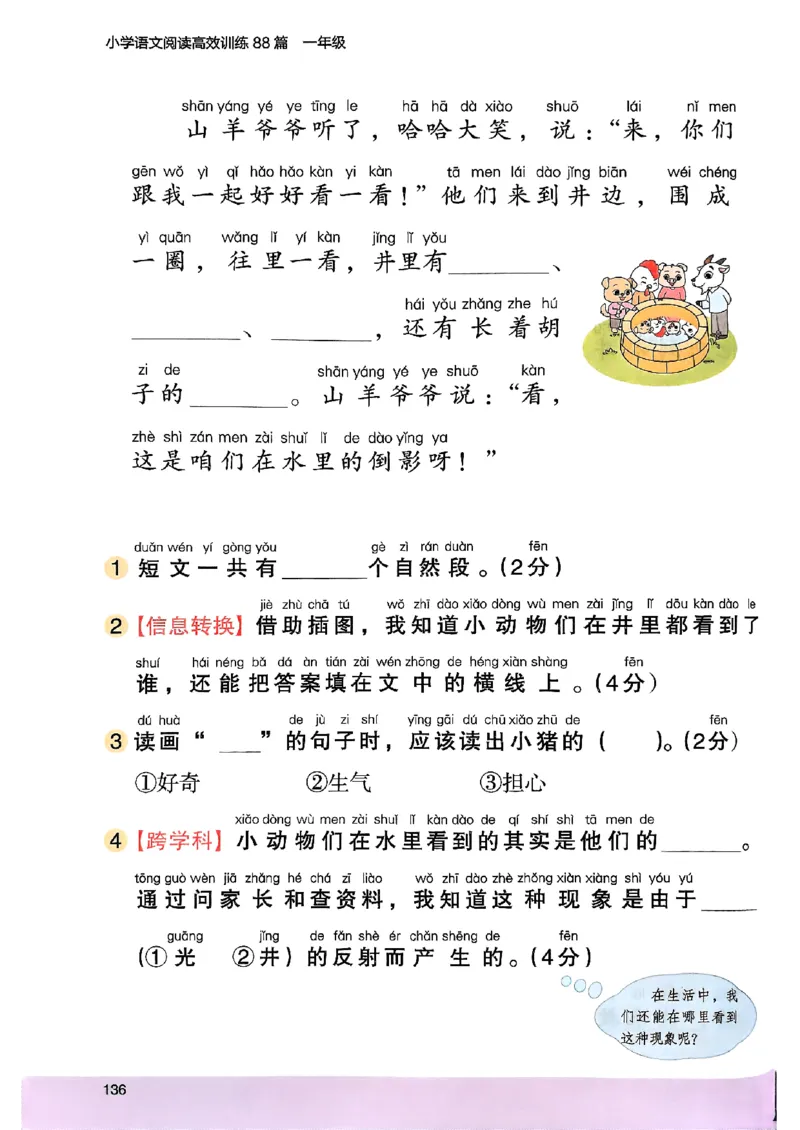 小学语文阅读高效训练 88 篇 一年级
shān yáng yé ye tīng le hā hā dà xiào shuō lái nǐ men
山羊爷爷听了，哈哈大笑，说：“来，你们
gēn wǒ yì qǐ hǎo hǎo kàn yi kàn tā men lái dào jǐng biān wéi chéng
跟我一起好好看一看！”他们来到井边，围成
yì quān wǎng lǐ yí kàn jǐng lǐ yǒu
一圈，往里一看，井里有________、
hái yǒu zhǎng zhe hú
________、________，还有长着胡
zi de shān yáng yé ye shuō kàn
子的________。山羊爷爷说：“看，
zhè shì zán men zài shuǐ lǐ de dào yǐng ya
这是咱们在水里的倒影呀！”
duǎn wén yí gòng yǒu gè zì rán duàn fēn
1 短文一共有______个自然段。(2分)
jiè zhù chā tú wǒ zhī dào xiǎo dòng wù men zài jǐng lǐ dōu kàn dào le
2【信息转换】借助插图，我知道小动物们在井里都看到了
shuí hái néng bǎ dá àn tián zài wén zhōng de héng xiàn shàng fēn
谁，还能把答案填在文中的横线上。(4分)
dú huà de jù zi shí yīng gāi dú chū xiǎo zhū de fēn
3 读画“ ___”的句子时，应该读出小猪的（ ）。(2分)
①好奇 ②生气 ③担心
xiǎo dòng wù men zài shuǐ lǐ kàn dào de qí shí shì tā men de
4【跨学科】小动物们在水里看到的其实是他们的______。
tōng guò wèn jiā zhǎng hé chá zī liào wǒ zhī dào zhè zhǒng xiàn xiàng shì yóu yú
通过问家长和查资料，我知道这种现象是由于____
guāng jǐng de fǎn shè ér chǎn shēng de fēn
(①光 ②井) 的反射而产生的。(4分)
在生活中，我
们还能在哪里看到
这种现象呢？
136